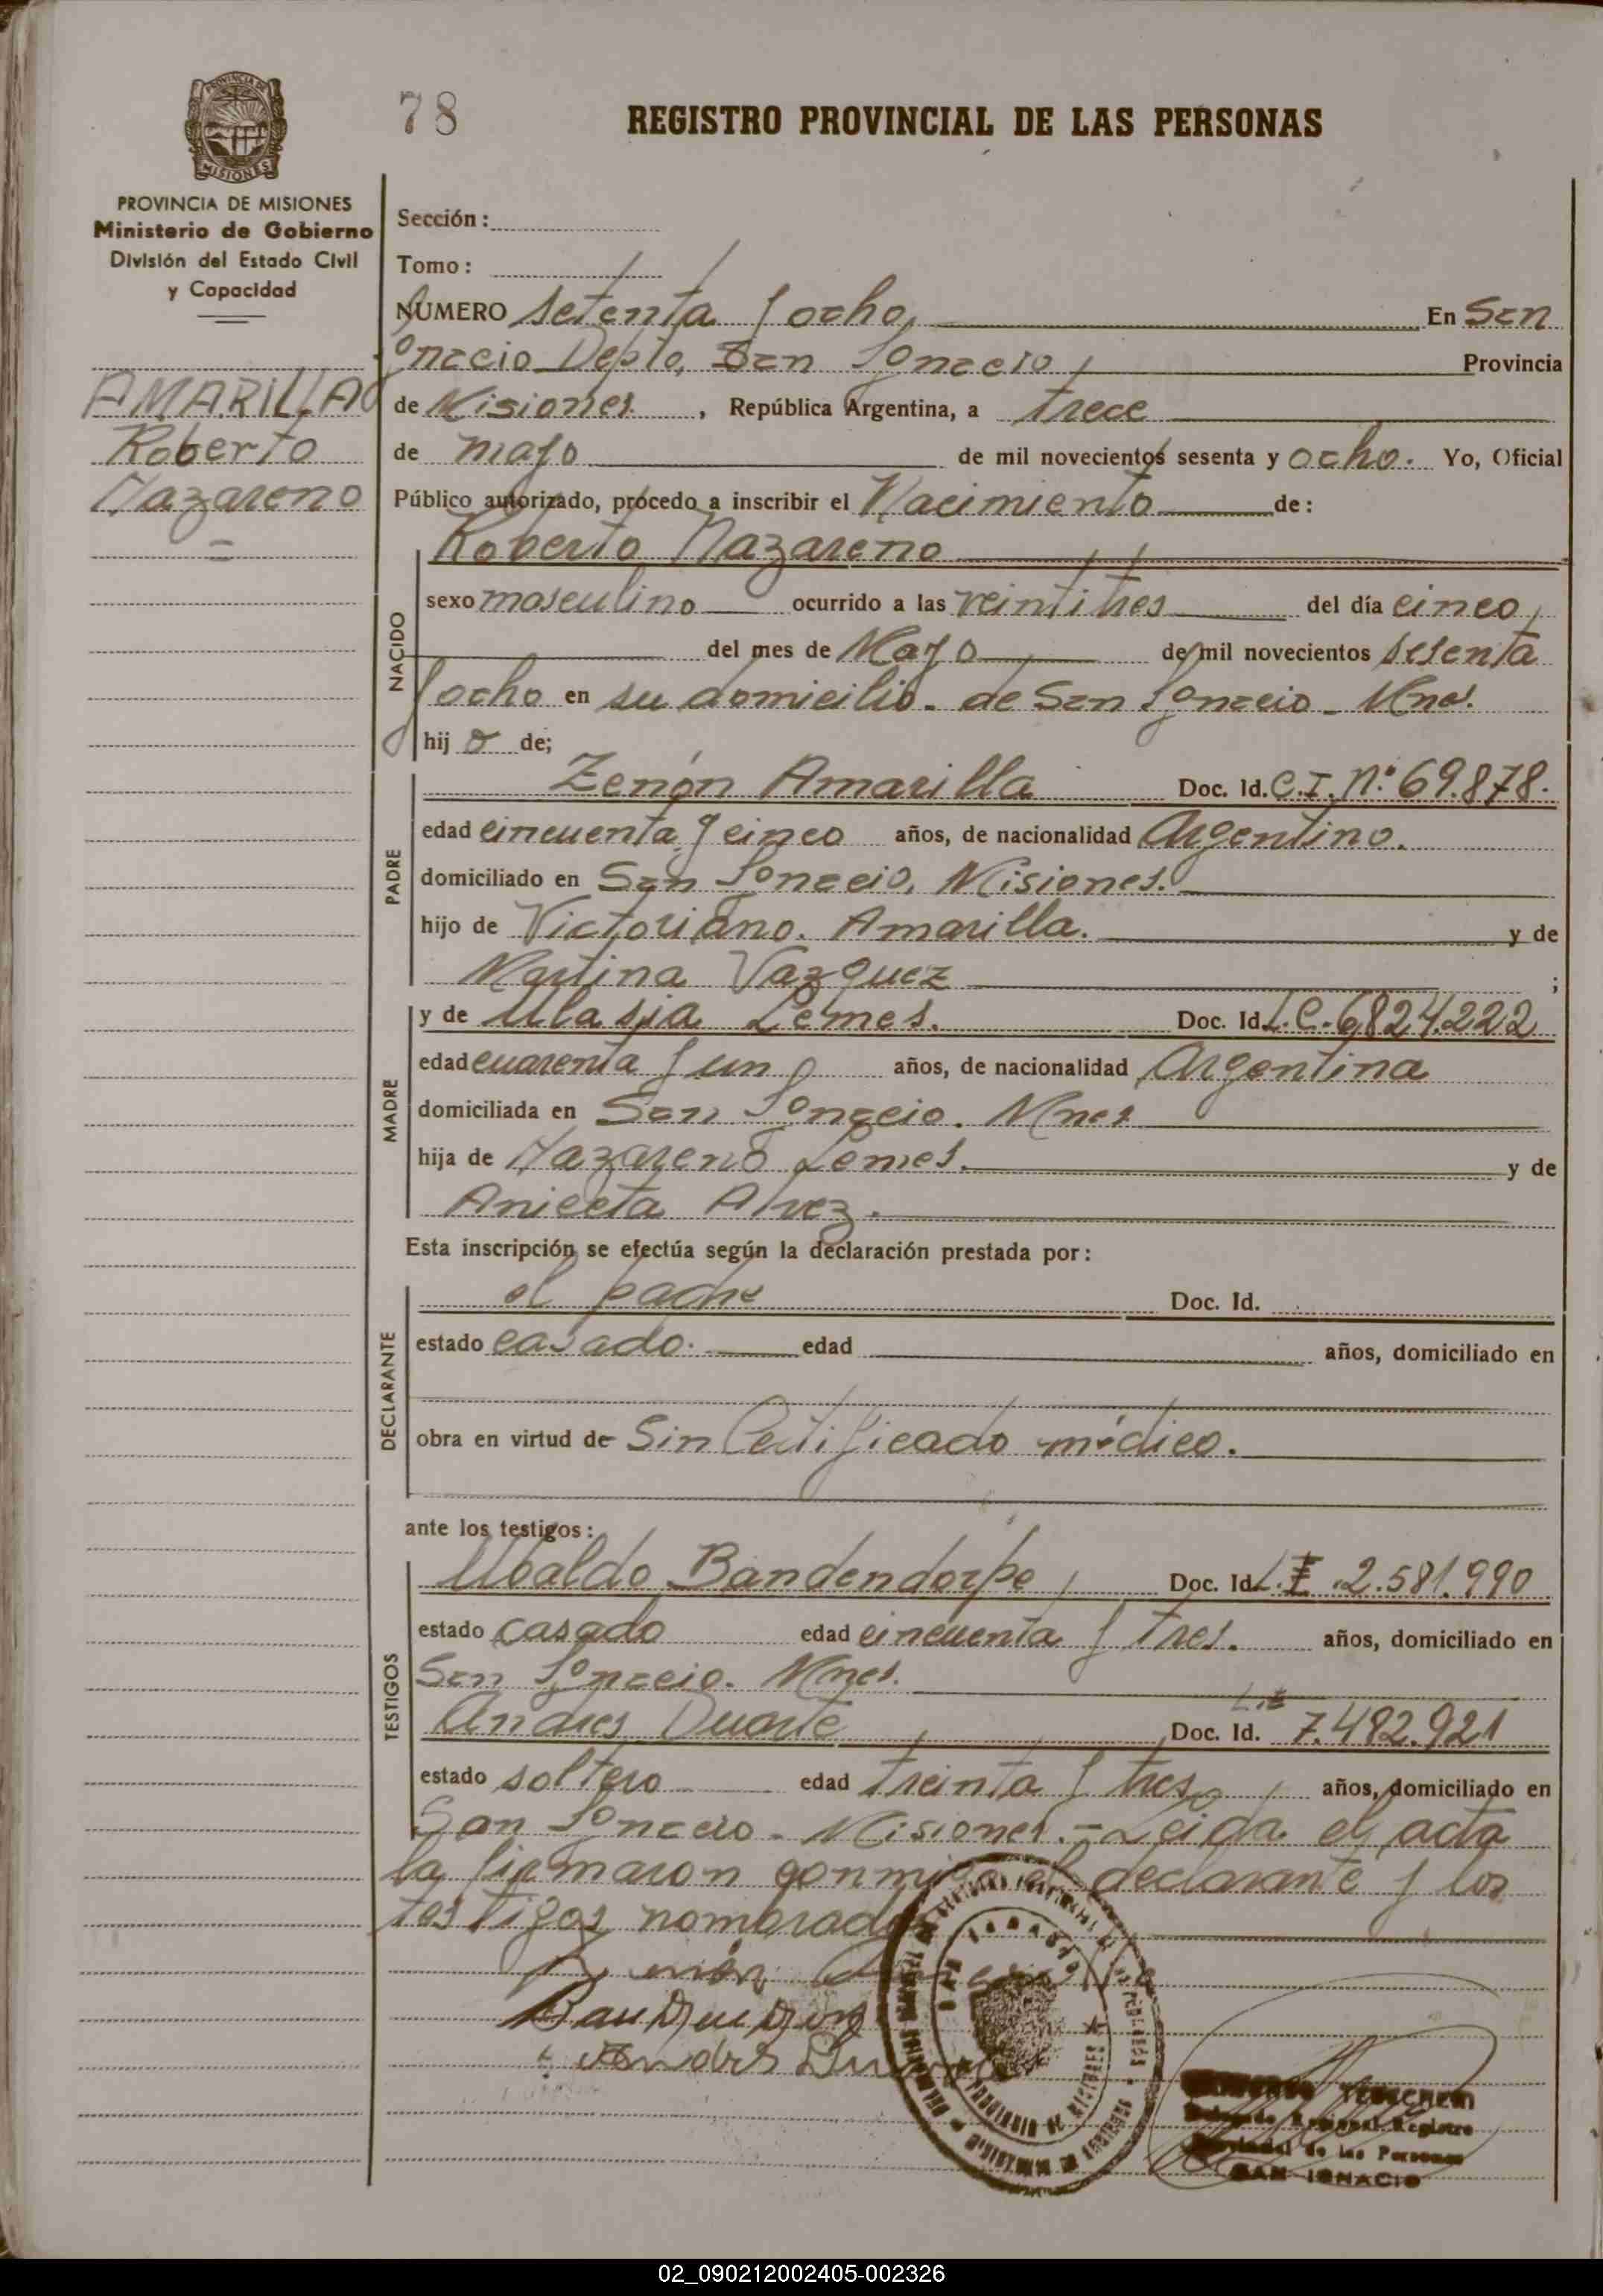 PROVINCIA DE
MISIONES
PROVINCIA DE MISIONES
Ministerio de Gobierno
División del Estado Civil
y Capacidad
AMARILLA
Roberto
Nazareno
78
REGISTRO PROVINCIAL DE LAS PERSONAS
Sección:
Tomo:
NUMERO setenta y ocho, En San
Ignacio Depto. San Ignacio, Provincia
de Misiones, República Argentina, a trece
de mayo de mil novecientos sesenta y ocho. Yo, Oficial
Público autorizado, procedo a inscribir el Nacimiento de:
Roberto Nazareno
NACIDO
sexo masculino ocurrido a las veintitres del día cinco,
del mes de Mayo de mil novecientos sesenta
y ocho en su domicilio. de San Ignacio - Mnes.
hij o de;
PADRE
Zenón Amarilla Doc. Id. C.I. Nº 69.878.
edad cincuenta y cinco años, de nacionalidad Argentino.
domiciliado en San Ignacio, Misiones.
hijo de Victoriano. Amarilla. y de
Martina Vazquez ;
MADRE
y de Ulasia Lemes. Doc. Id. L.C. 6824.222
edad cuarenta y un años, de nacionalidad Argentina
domiciliada en San Ignacio. Mnes
hija de Nazareno Lemes. y de
Aniceta Alvez.
Esta inscripción se efectúa según la declaración prestada por:
DECLARANTE
el padre Doc. Id.
estado casado. edad años, domiciliado en
obra en virtud de Sin Certificado médico.
ante los testigos:
TESTIGOS
Ubaldo Bandendorpe, Doc. Id. L.E. 2.581.990
estado casado edad cincuenta y tres. años, domiciliado en
San Ignacio. Mnes.
Andres Duarte Doc. Id. L.E 7.482.921
estado soltero edad treinta y tres años, domiciliado en
San Ignacio - Misiones. - Leida el acta
la firmaron conmigo el declarante y los
testigos nombrados
Andres
Delegado Regional Registro
Provincial de las Personas
SAN IGNACIO
02_090212002405-002326